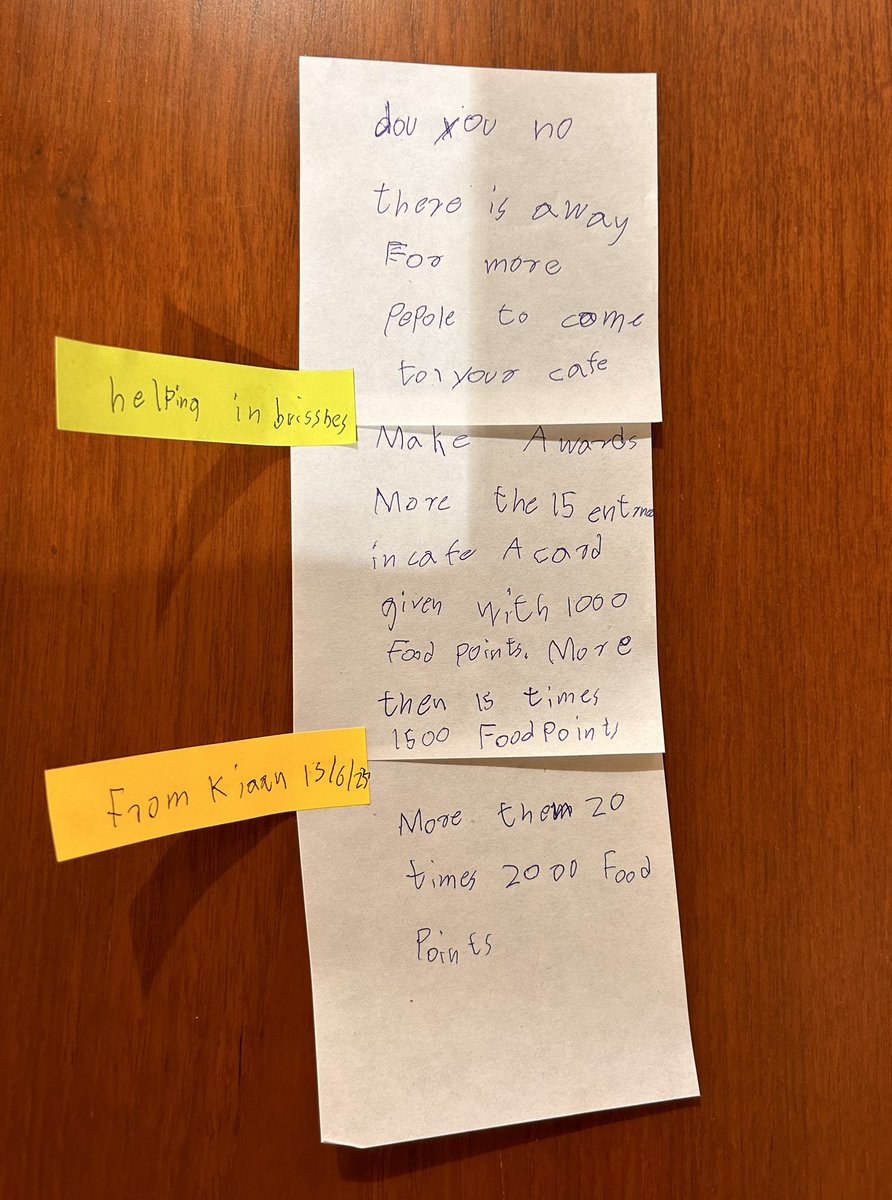 dou you no
there is away
For more
pepole to come
to your cafe
helping in brisshes
Make Awards
More the 15
in cafe A card
given with 1000
Food points. More
then 15 times
1500 Food Points
From Kiaan 13/6/25
More them 20
times 2000 Food
Points